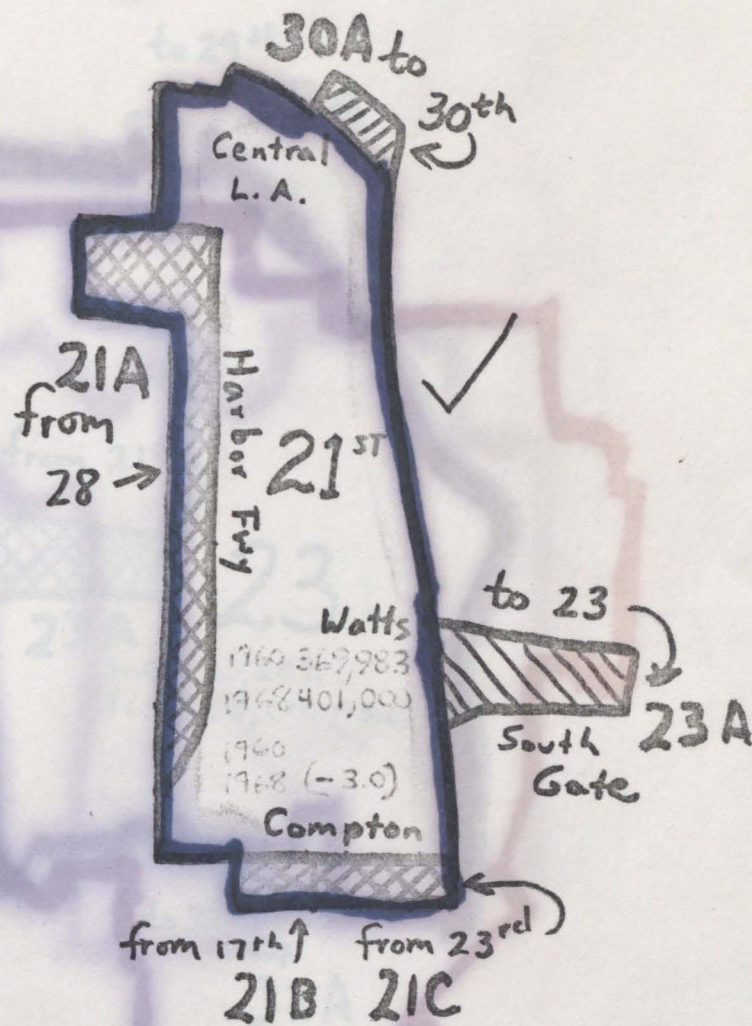 30A to
30th
Central
L.A.
21A
from
28 →
Harbor Fwy
21ST
✓
to 23
Watts
1960 369,983
1968 401,000
1960
1968 (-3.0)
23A
South
Gate
Compton
from 17th ↑ from 23rd
21B 21C